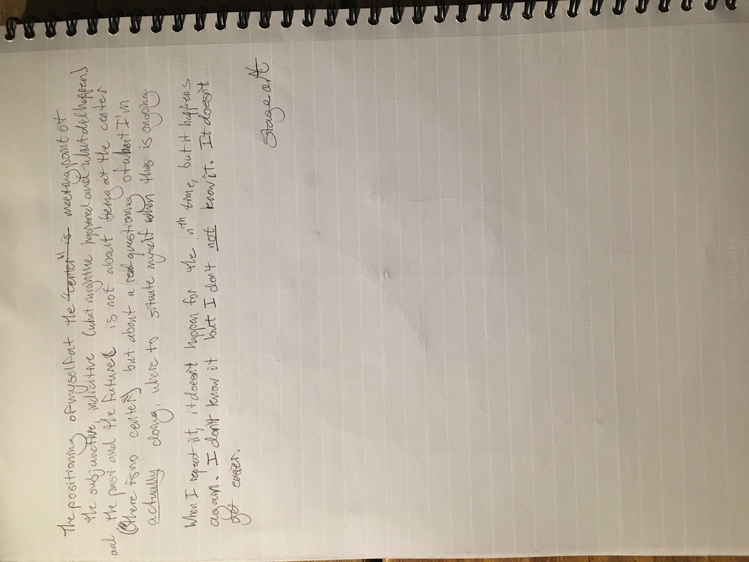 The positioning of myself at the "center" is meeting point of
the subjunctive, indicitive (what might've happened and what did happen)
and the past and the future is not about being at the center
("there is no center") but about a real questioning of what I'm
actually doing, where to situate myself when this is ongoing
When I repeat it, it doesn't happen for the nth time, but it happens
again. I don't know it but I don't not know it. It doesn't
get easier.
Stage art